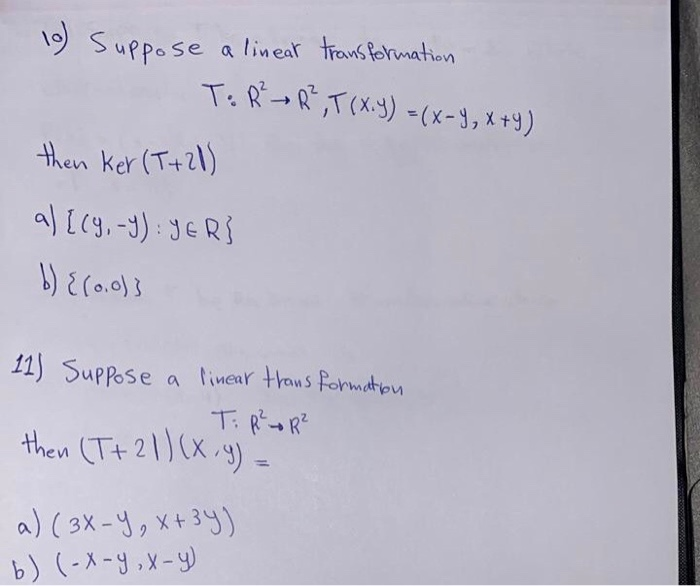 10) Suppose a linear transformation
T: R² → R², T(x,y) = (x-y, x+y)
then Ker (T+2I)
a) {(y,-y) : y ∈ R}
b) {(0,0)}
11) Suppose a linear transformation
T: R² → R²
then (T+2I)(x,y) =
a) (3x-y, x+3y)
b) (-x-y, x-y)